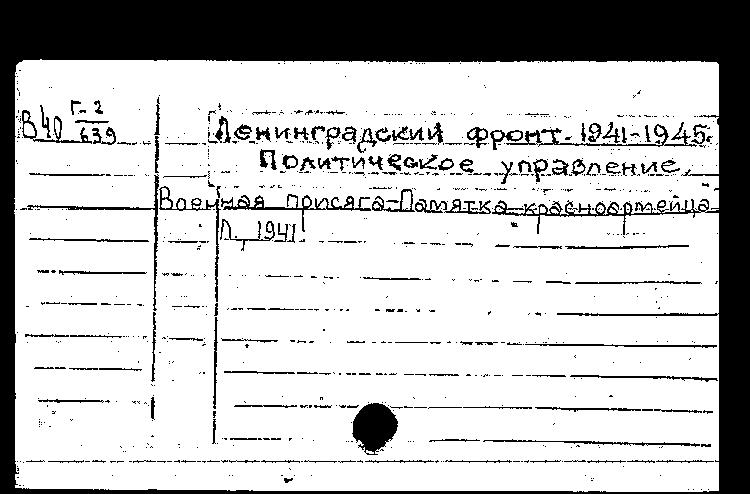 В40 Г-2
639
Ленинградский фронт. 1941-1945.
Политическое управление.
Военная присяга-Памятка красноармейца
Л., 1941.